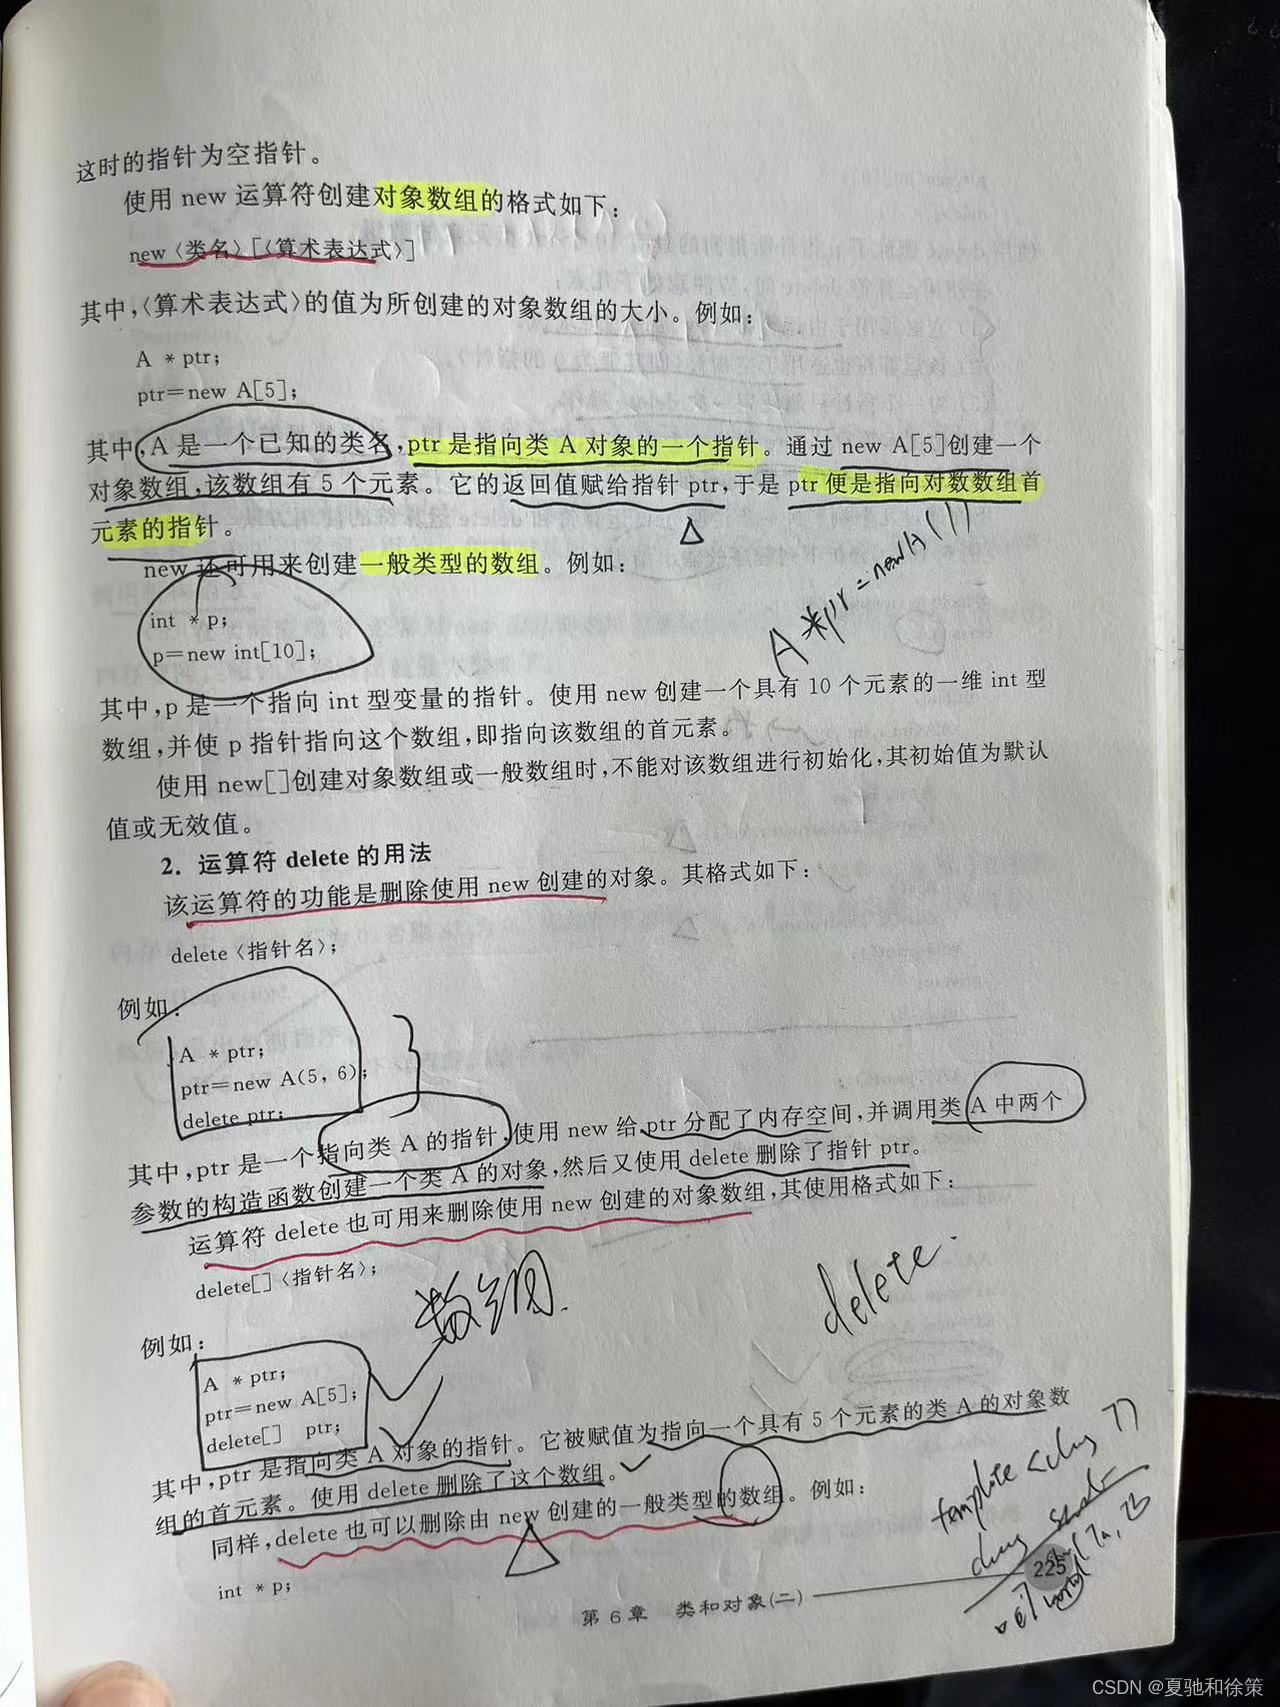 这时的指针为空指针。
使用 new 运算符创建对象数组的格式如下：
new〈类名〉[〈算术表达式〉]
其中,〈算术表达式〉的值为所创建的对象数组的大小。例如：
A * ptr;
ptr=new A[5];
其中,A 是一个已知的类名,ptr 是指向类 A 对象的一个指针。通过 new A[5]创建一个
对象数组,该数组有 5 个元素。它的返回值赋给指针 ptr,于是 ptr 便是指向对数数组首
元素的指针。
new 还可用来创建一般类型的数组。例如：
A *ptr=new A( )
int * p;
p=new int[10];
其中,p 是一个指向 int 型变量的指针。使用 new 创建一个具有 10 个元素的一维 int 型
数组,并使 p 指针指向这个数组,即指向该数组的首元素。
使用 new[]创建对象数组或一般数组时,不能对该数组进行初始化,其初始值为默认
值或无效值。
2. 运算符 delete 的用法
该运算符的功能是删除使用 new 创建的对象。其格式如下：
delete〈指针名〉;
例如：
A * ptr;
ptr=new A(5, 6);
delete ptr;
其中,ptr 是一个指向类 A 的指针,使用 new 给 ptr 分配了内存空间,并调用类 A 中两个
参数的构造函数创建一个类 A 的对象,然后又使用 delete 删除了指针 ptr。
运算符 delete 也可用来删除使用 new 创建的对象数组,其使用格式如下：
delete[]〈指针名〉;
数组.
delete.
例如：
A * ptr;
ptr=new A[5];
delete[] ptr;
其中,ptr 是指向类 A 对象的指针。它被赋值为指向一个具有 5 个元素的类 A 的对象数
组的首元素。使用 delete 删除了这个数组。
同样,delete 也可以删除由 new 创建的一般类型的数组。例如：
int * p;
template <
第 6 章 类和对象(二)
225
CSDN @夏驰和徐策